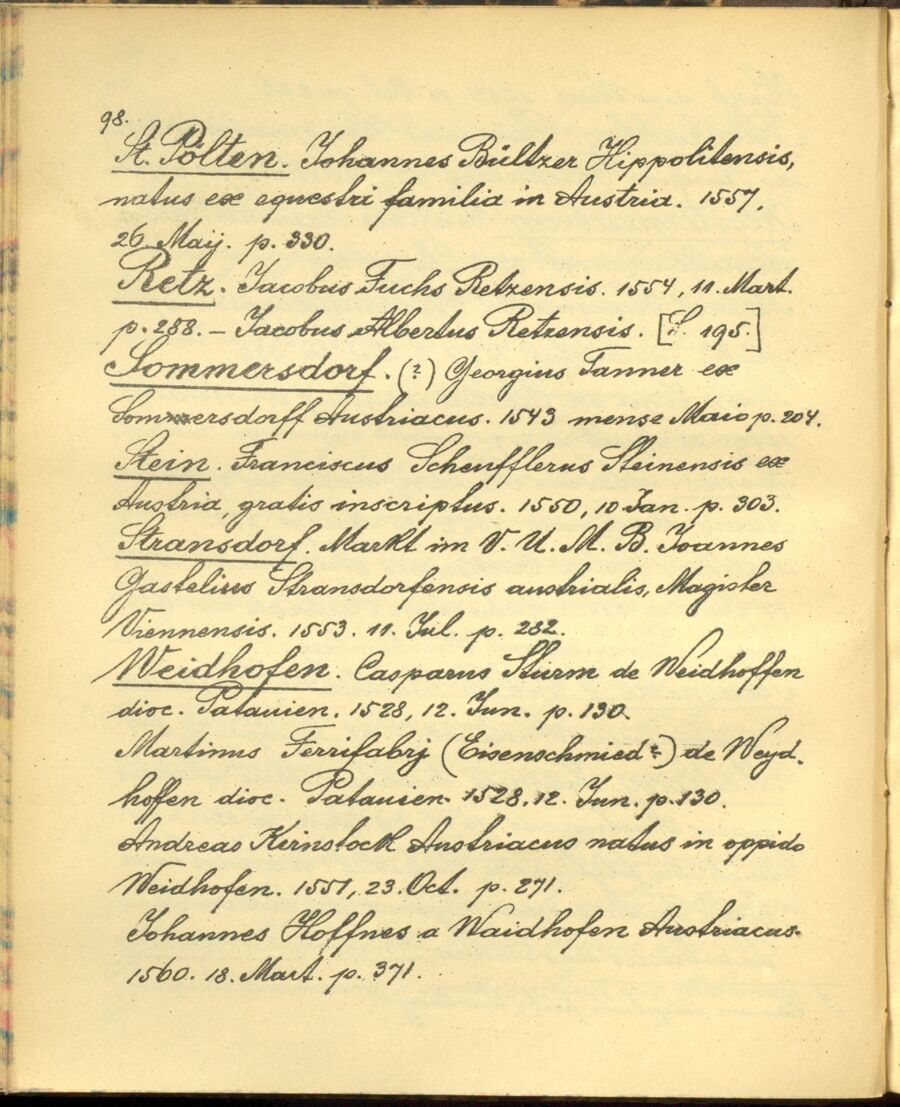 98.
St. Pölten. Johannes Bültzer Hippolitensis,
natus ex equestri familia in Austria. 1557,
26. Maij. p. 330.
Retz. Jacobus Fuchs Retzensis. 1554, 11. Mart.
p. 258. – Jacobus Albertus Retzensis. [S. 195.]
Sommersdorf. (?) Georgius Tanner ex
Sommersdorff Austriacus. 1543 mense Maio p. 204.
Stein. Franciscus Scheufflerus Steinensis ex
Austria, gratis inscriptus. 1550, 10 Jan. p. 303.
Stransdorf. Markt im V. U. M. B. Joannes
Gastelius Stransdorfensis australis, Magister
Viennensis. 1553. 11. Jul. p. 282.
Weidhofen. Casparus Sturm de Weidhoffen
dioc. Patauien. 1528, 12. Jun. p. 130.
Martinus Ferrifabrj (Eisenschmied?) de Weyd.
hoffen dioc. Patauien. 1528. 12. Jun. p. 130.
Andreas Kirnstock Austriacus natus in oppido
Weidhofen. 1551, 23. Oct. p. 271.
Johannes Hoffnes a Waidhofen Austriacus.
1560. 18. Mart. p. 371.